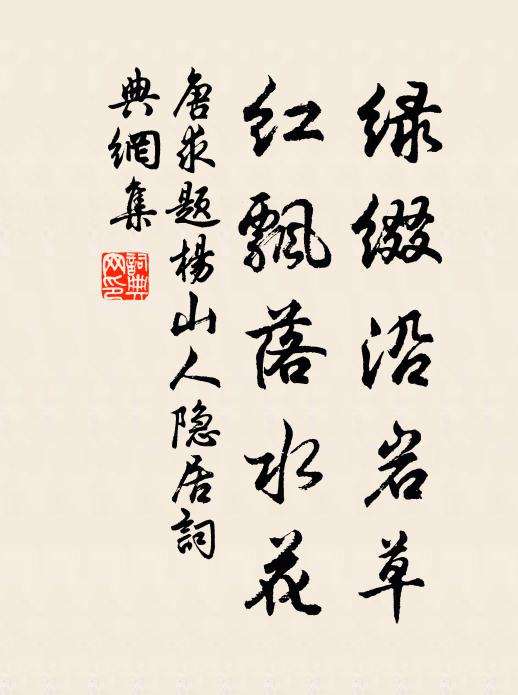 绿缀沿岩草
红飘落水花
唐求题杨山人隐居詞
典網集
詞典網印